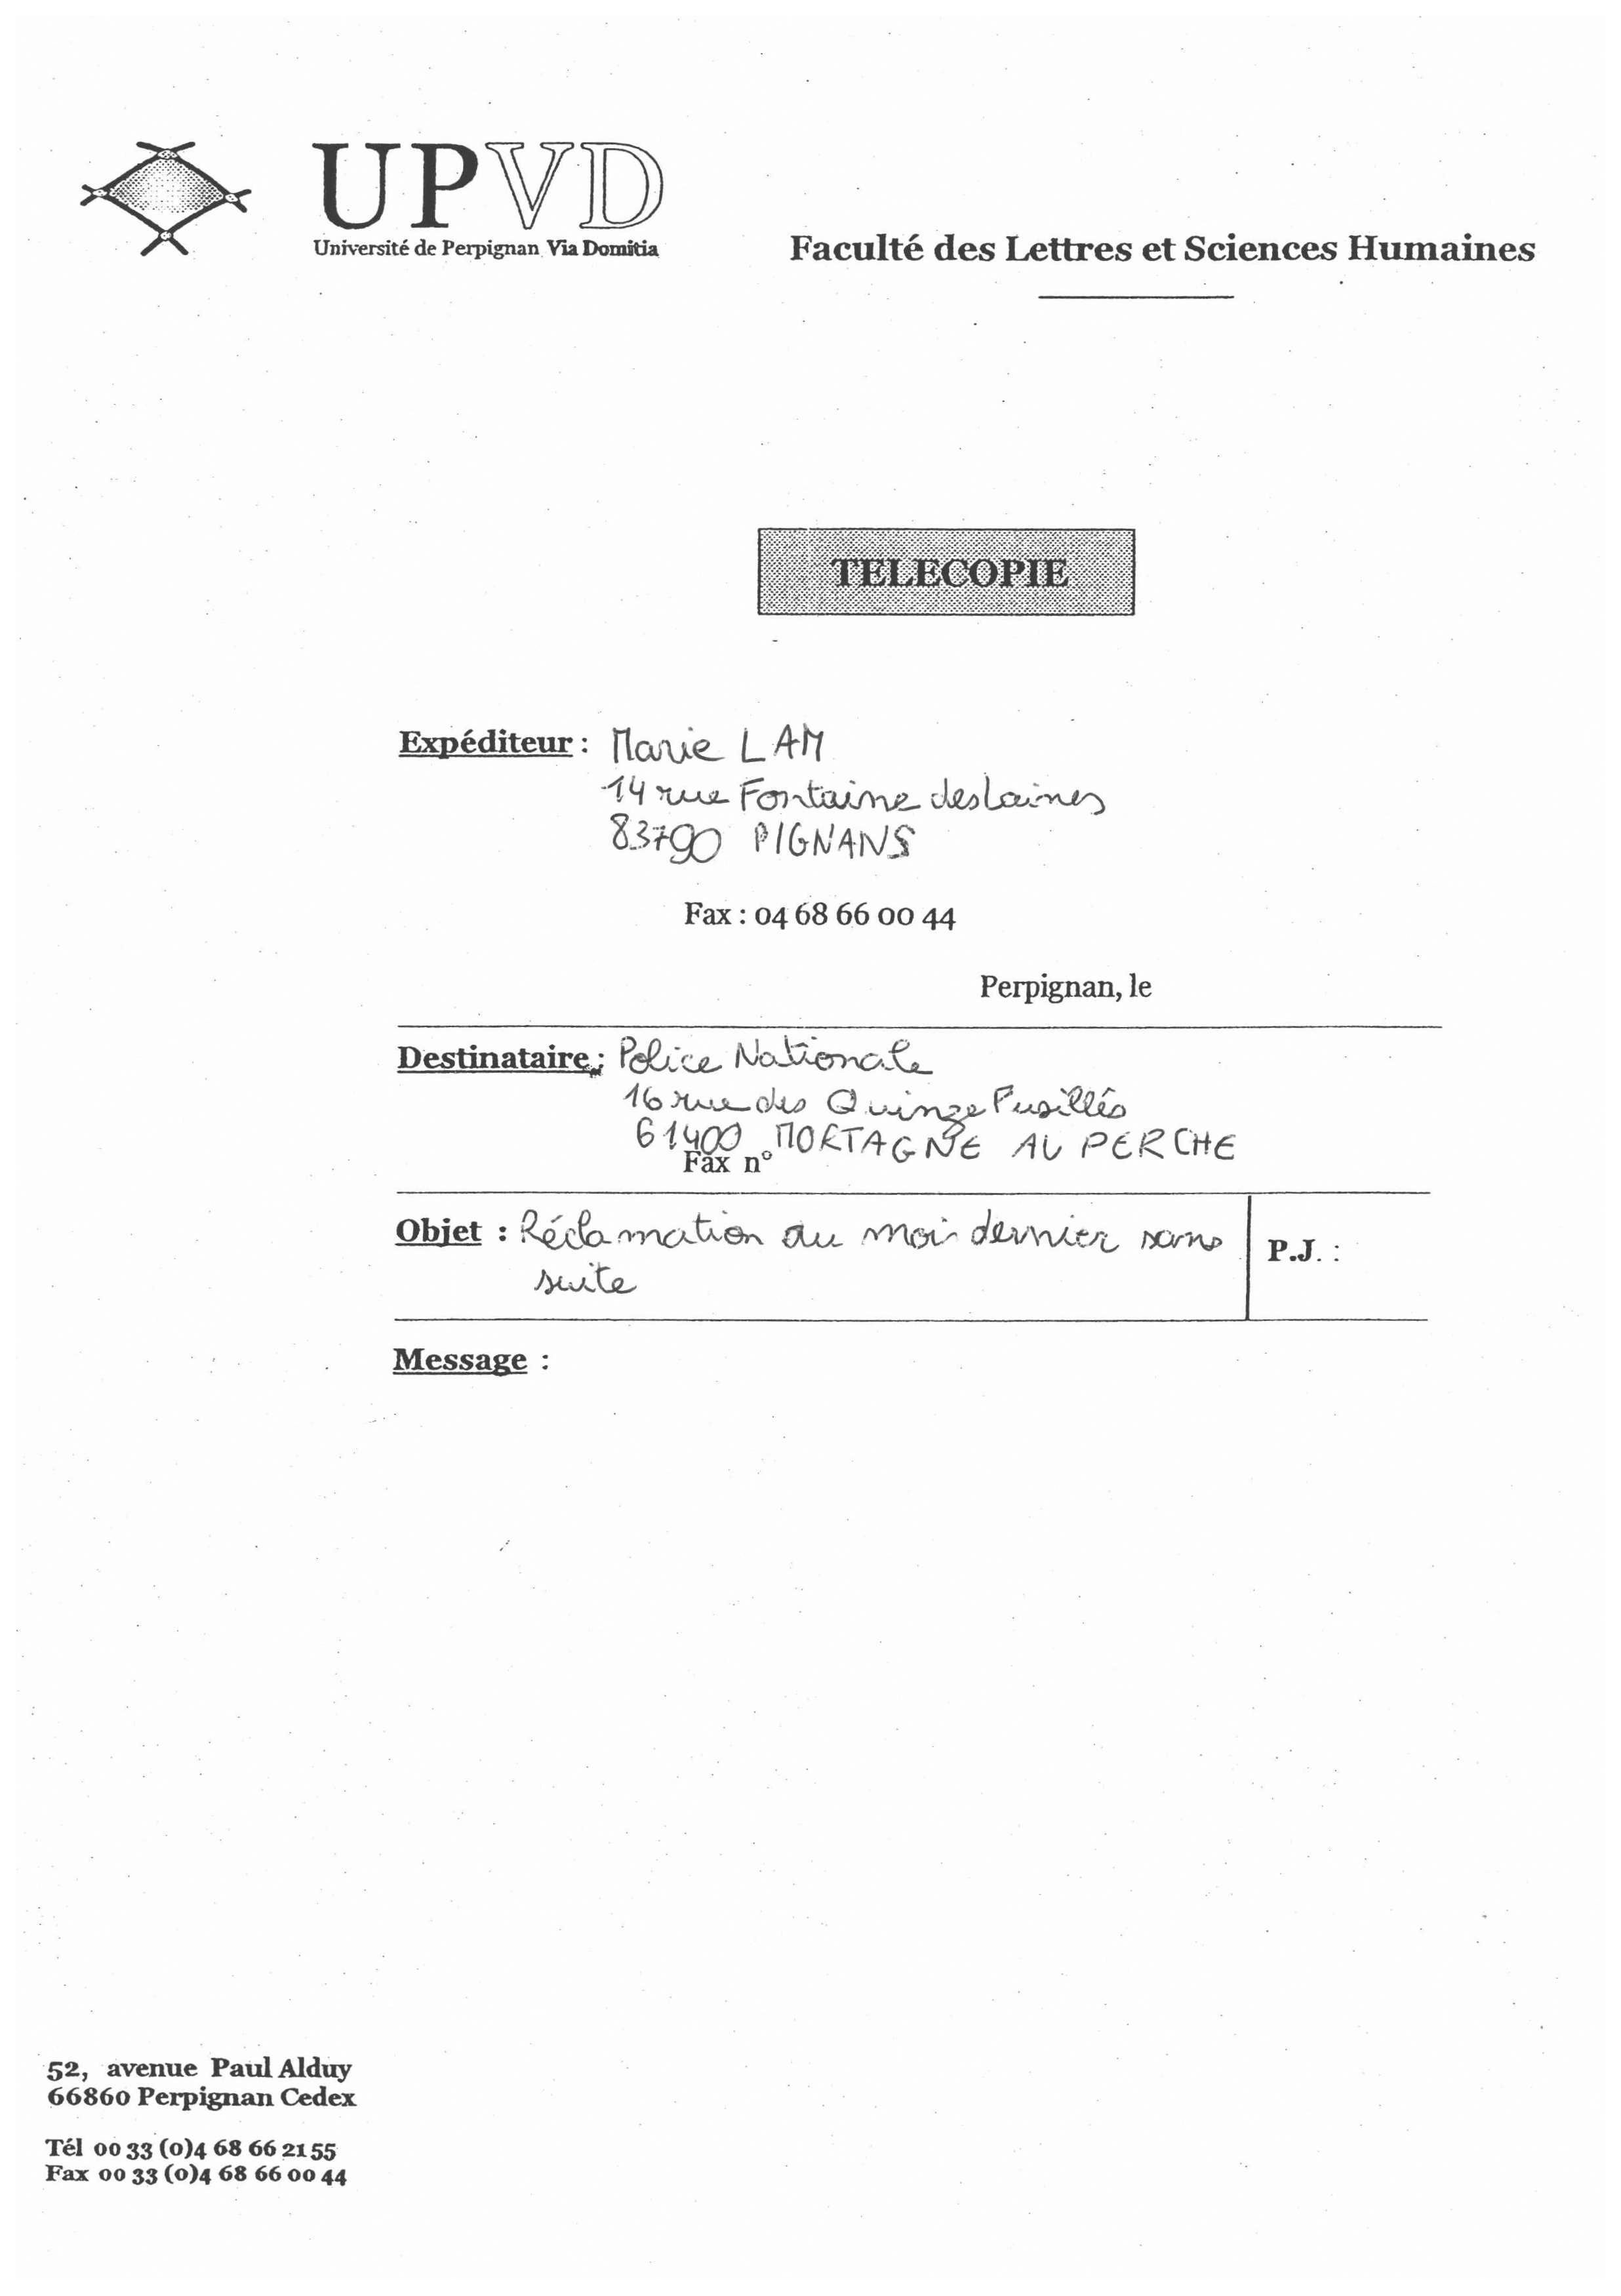 UPVD
Université de Perpignan Via Domitia
Faculté des Lettres et Sciences Humaines
TELECOPIE
Expéditeur : Marie LAM
14 rue Fontaine des Laines
83790 PIGNANS
Fax : 04 68 66 00 44
Perpignan, le
Destinataire : Police Nationale
16 rue des Quinze Fusillés
61400 MORTAGNE AU PERCHE
Fax n°
Objet : Réclamation du mois dernier sans
suite
P.J. :
Message :
52, avenue Paul Alduy
66860 Perpignan Cedex
Tél 00 33 (0)4 68 66 21 55
Fax 00 33 (0)4 68 66 00 44